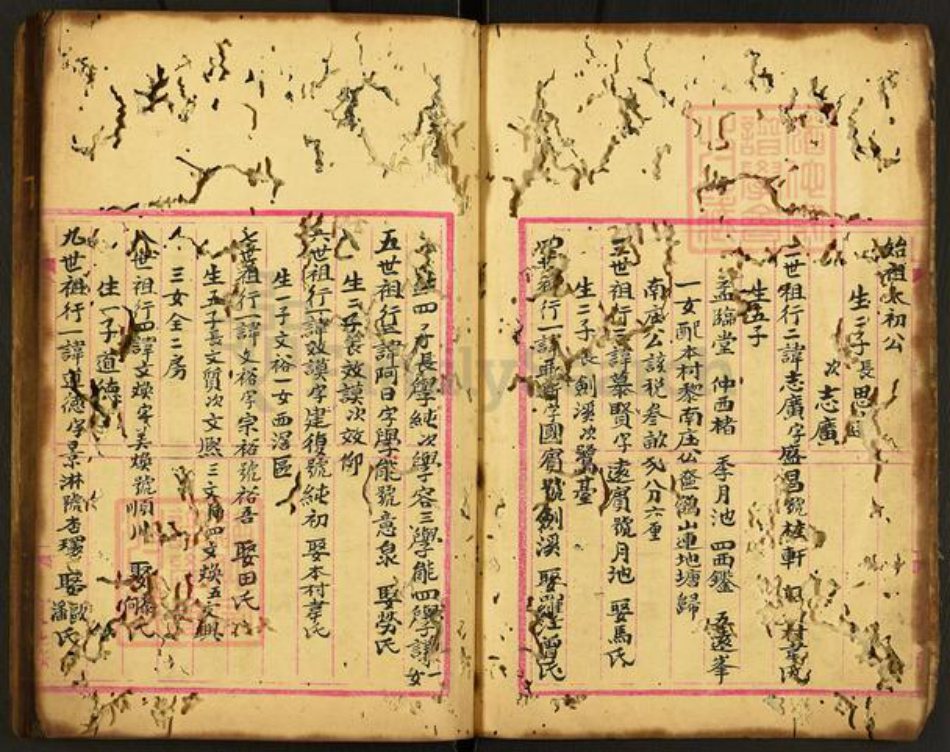 始祖太初公
生二子長思
次志廣
二世祖行二諱志廣字啟昌號桂軒
生五子
孟臨堂 仲西楮 季月池 四西鑑 五遠峯
一女配本村黎南庄公奩鴻山連地塘歸
南庄公該稅叁畝弍八分六厘
三世祖行三諱慕賢字遠賓號月池 娶馬氏
生二子長劍溪次鷺臺
四世祖行一諱 字國賓號劍溪 娶羅 曾氏
生四子長學純次學容三學能四學謙一女
五世祖行三諱阿日字學能號意泉 娶勞氏
生二子長效謨次效仰
六世祖行一諱效謨字建復號純初 娶本村韋氏
生一子文裕一女西滘區
七世祖行一諱文裕字宗裕號裕吾 娶田氏
生五子長文質次文熙三文 四文煥五文興
三女全二房
八世祖行四諱文煥字美煥號順川 娶 何氏
生一子道德
九世祖行一諱道德字景淋 娶歐潘氏